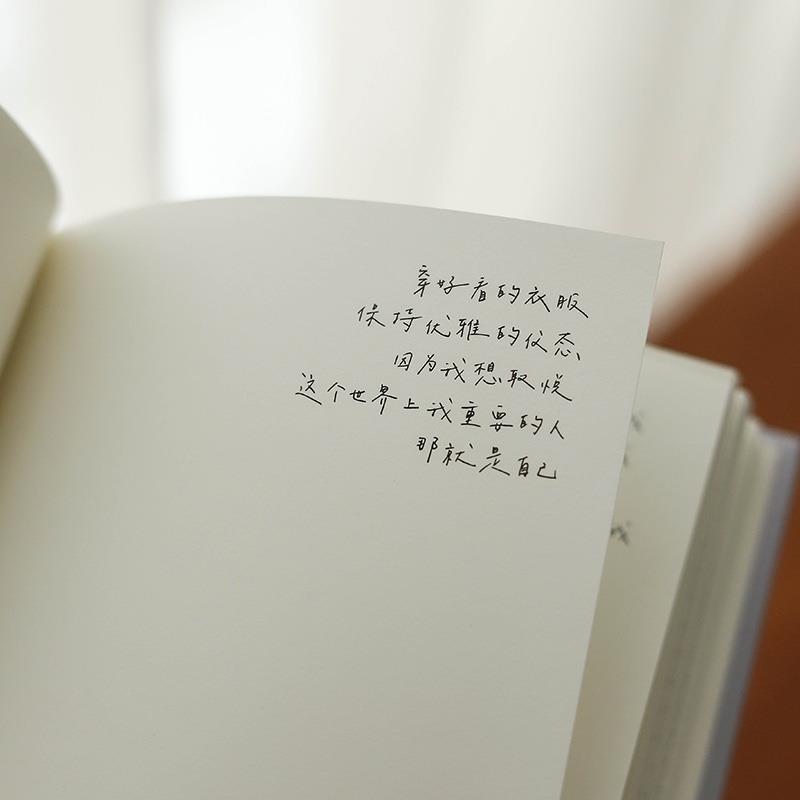 穿好看的衣服
保持优雅的仪态
因为我想取悦
这个世界上我重要的人
那就是自己